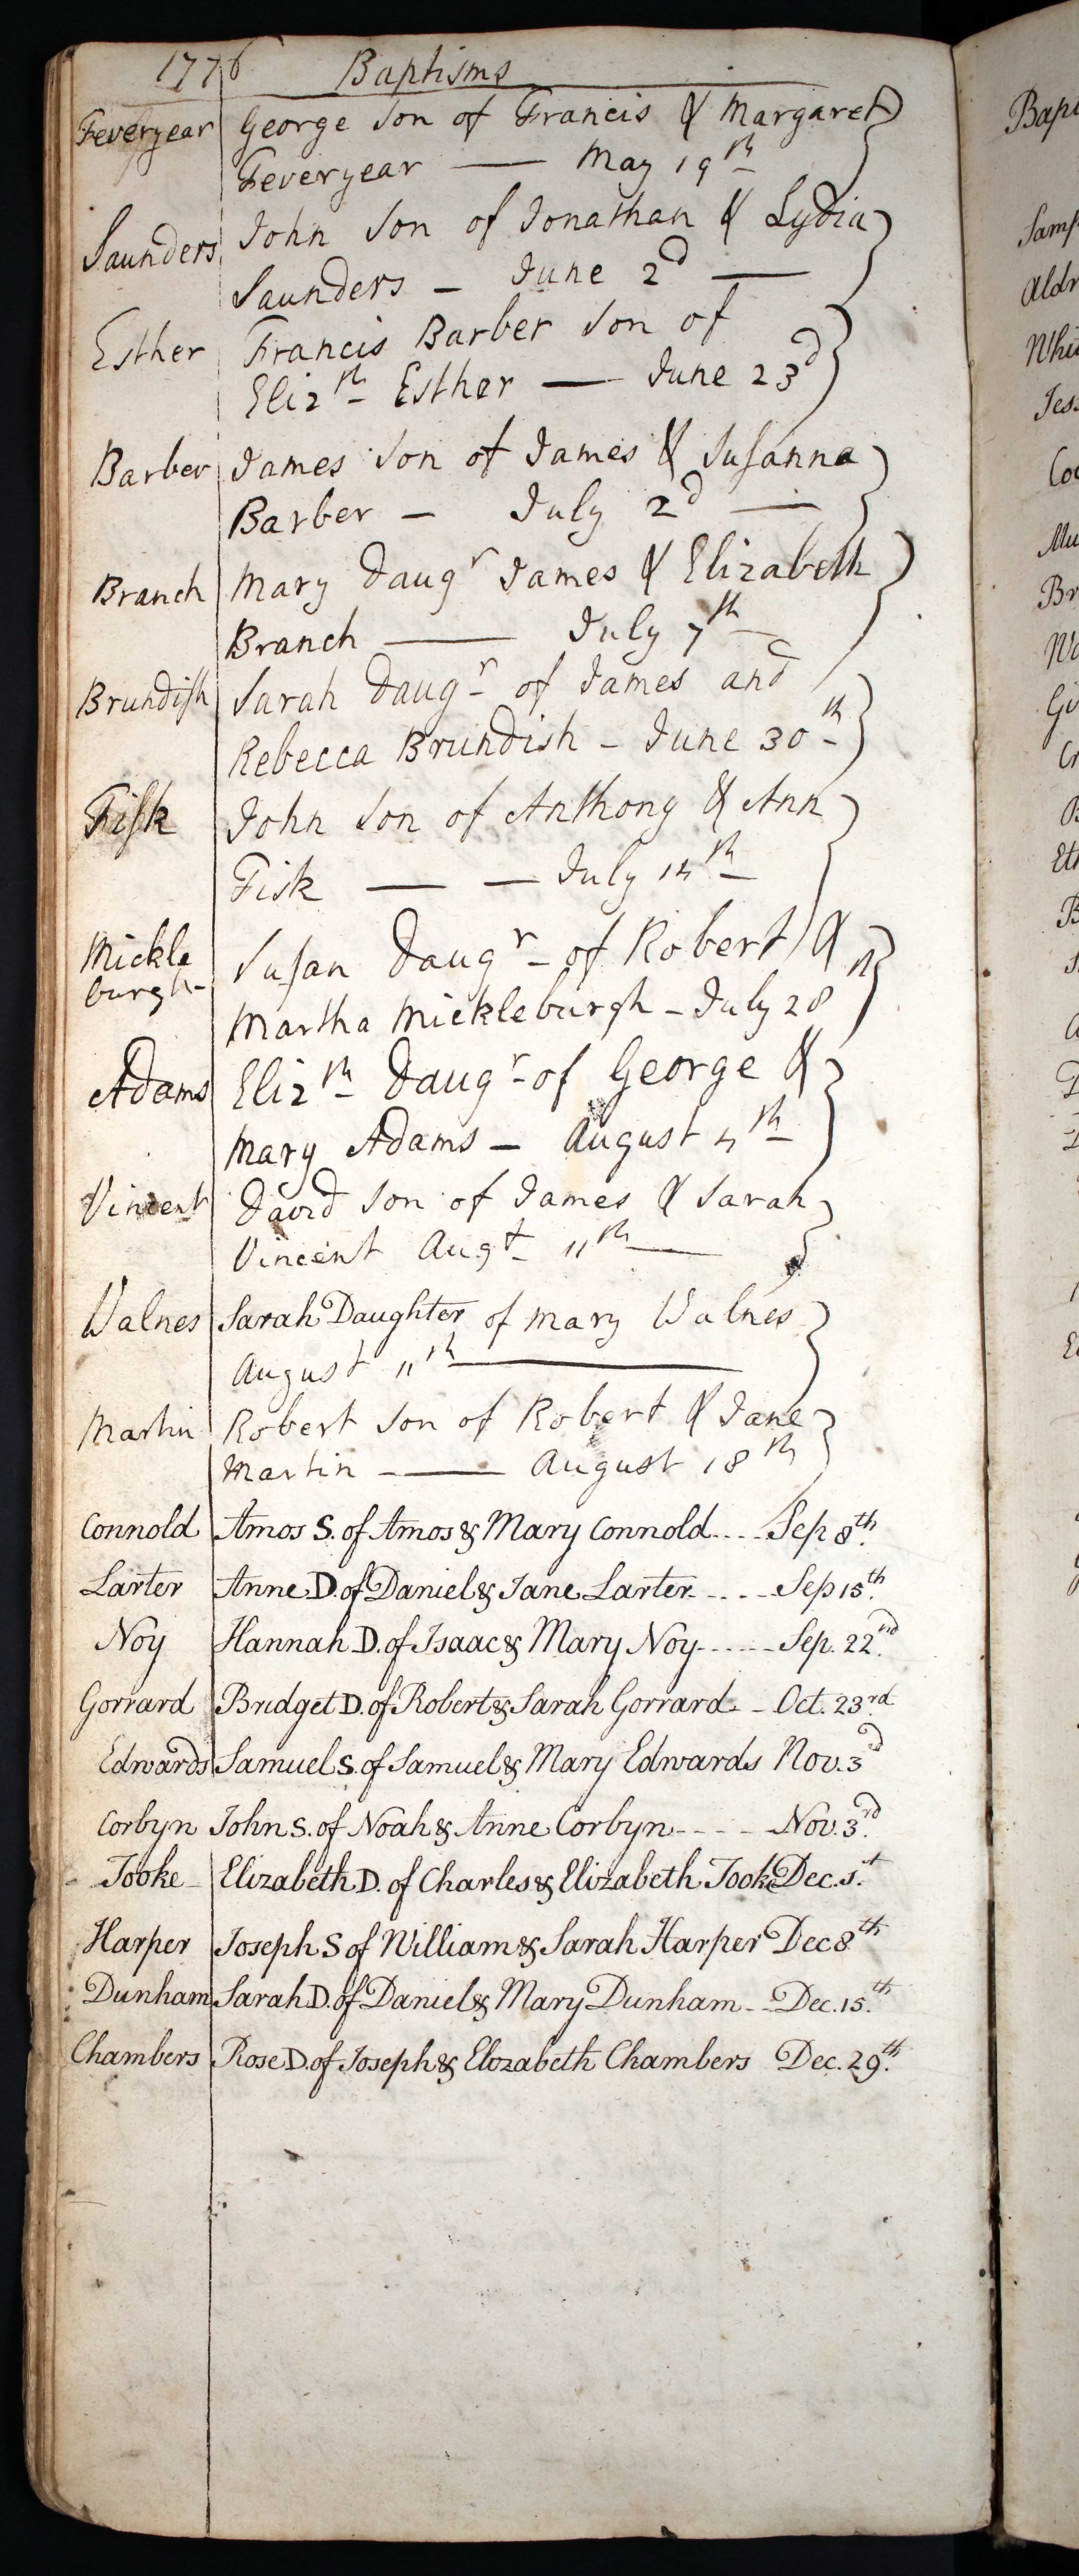 1776 Baptisms
Feveryear George Son of Francis & Margaret
Feveryear — May 19th
Saunders John Son of Jonathan & Lydia
Saunders – June 2d —
Esther Francis Barber Son of
Elizth Esther — June 23d
Barber James Son of James & Suſanna
Barber – July 2d —
Branch Mary Daugr James & Elizabeth
Branch — July 7th
Brundiſh Sarah Daugr of James and
Rebecca Brundish – June 30th
Fiſk John Son of Anthony & Ann
Fisk — — July 14th
Mickle Suſan Daugr of Robert &
burgh- Martha Mickleburgh – July 28th
Adams Elizth Daugr of George &
Mary Adams – August 4th
Vincent David Son of James & Sarah
Vincent Augt 11th —
Walnes Sarah Daughter of Mary Walnes
August 11th —
Martin Robert Son of Robert & Jane
Martin – — August 18th
Connold Amos S. of Amos & Mary Connold.... Sep 8th.
Larter Anne D. of Daniel & Jane Larter..... Sep 15th.
Noy Hannah D. of Isaac & Mary Noy...... Sep. 22nd.
Gorrard Bridget D. of Robert & Sarah Gorrard – Oct. 23rd.
Edwards Samuel S. of Samuel & Mary Edwards Nov. 3d
Corbyn John S. of Noah & Anne Corbyn - - - - Nov. 3rd.
Jooke Elizabeth D. of Charles & Elizabeth Jooke Dec. 1st.
Harper Joseph S of William & Sarah Harper Dec 8th
Dunham Sarah D. of Daniel & Mary Dunham - - Dec. 15.th
Chambers Rose D. of Joseph & Elozabeth Chambers Dec. 29.th
Sam
Aldr
Whi
Br